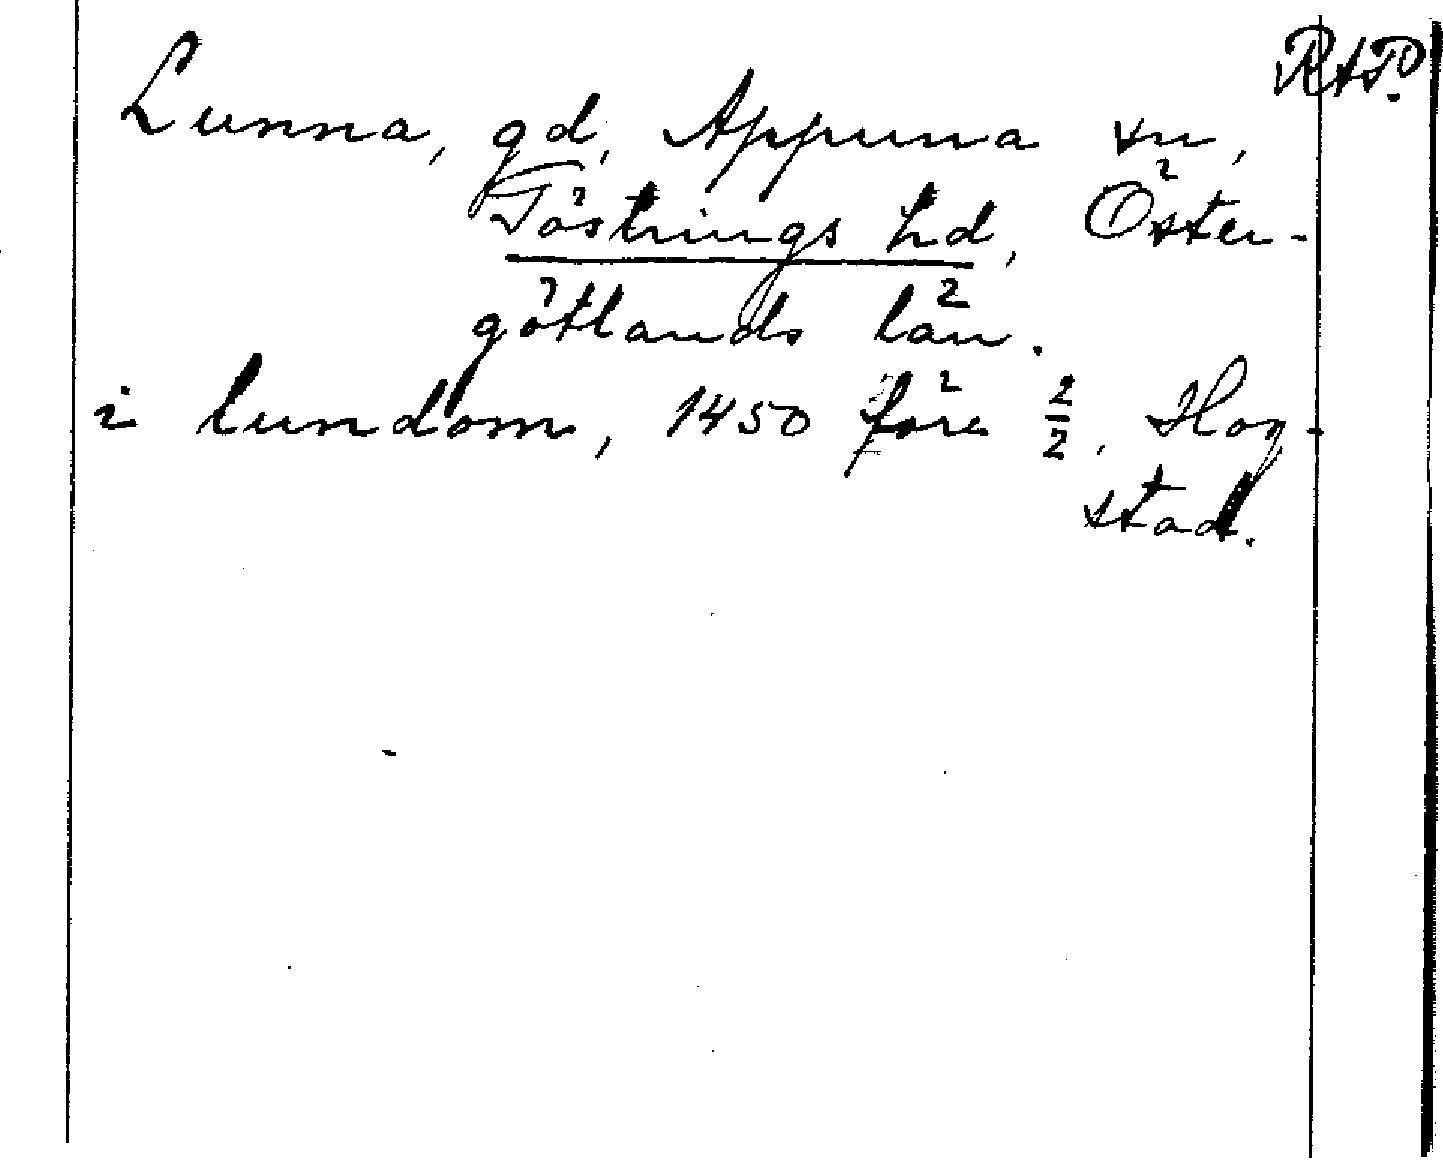 RAP.
Lunna, gd, Appuna sn,
Göstrings hd, Öster-
götlands län.
i lundom, 1450 före 2/2. Hog-
stad.